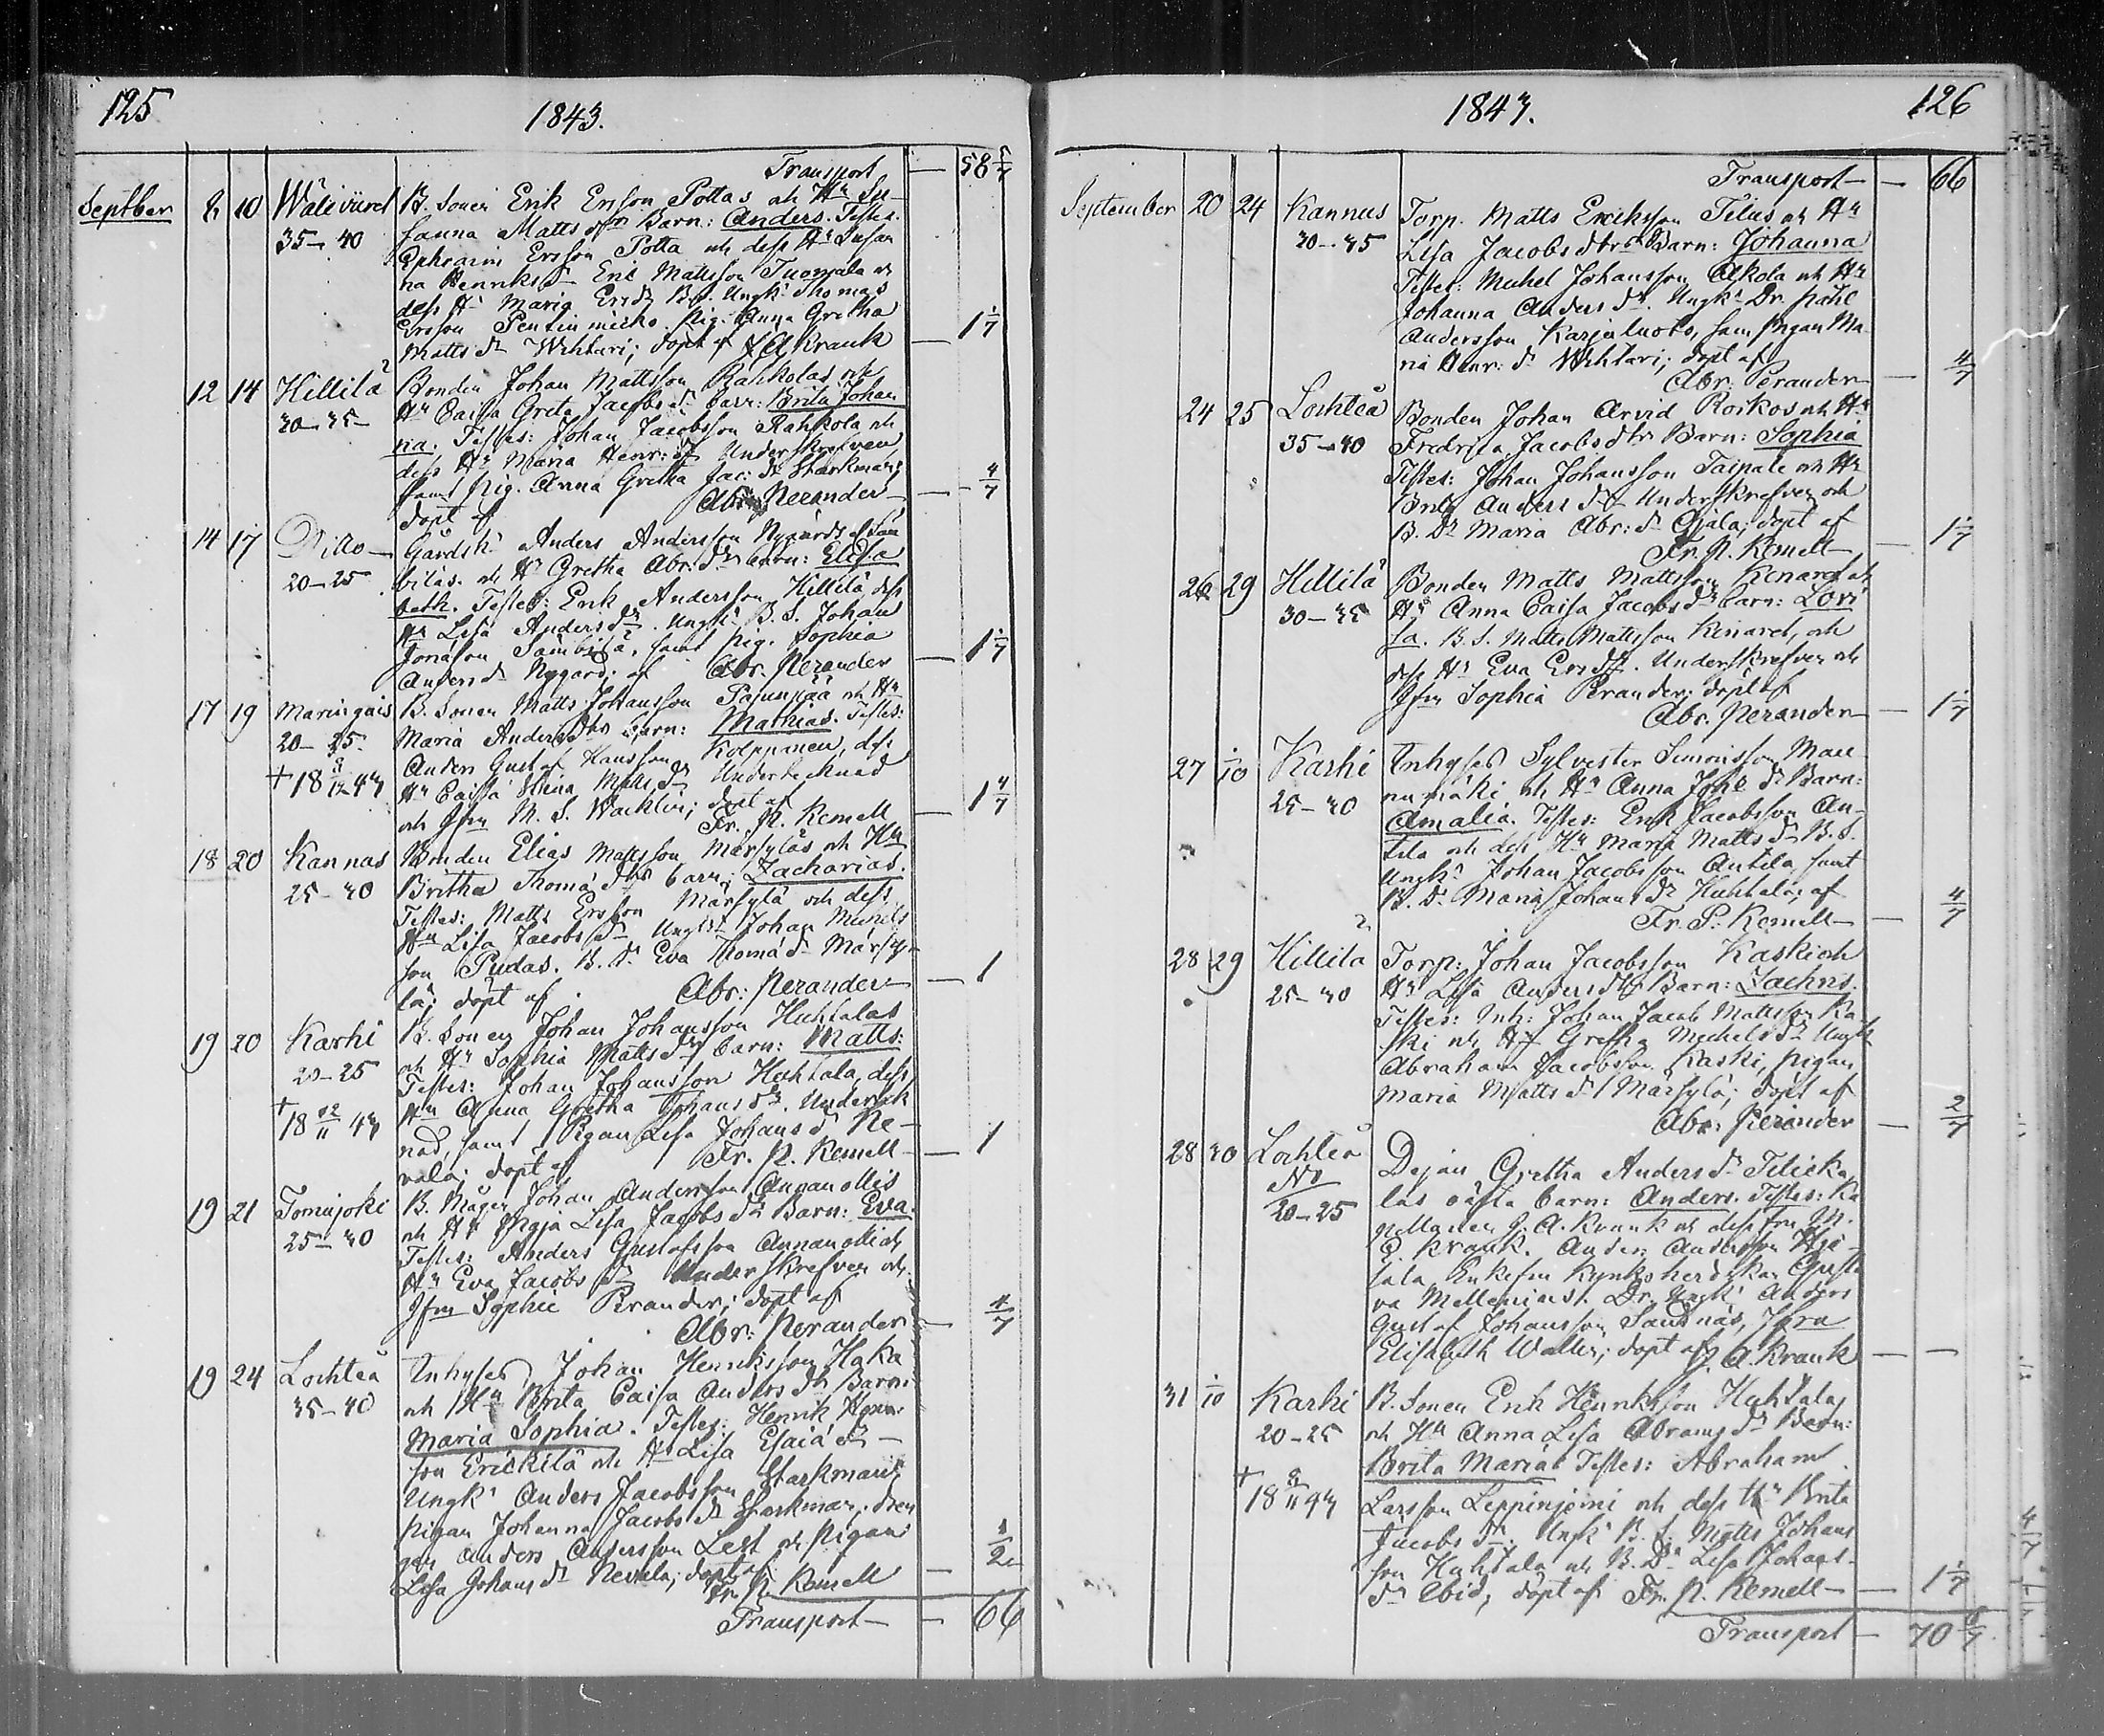 125
1843.
Transport — 58 5/7
Septber 8 10 Wälivüret B. Sonen Erik Ersson Pottas och Hu Su-
35–40 sanna Matts dr Barn: Anders. Testes:
Ephraim Ersson Potta och dess Hu Susan
na Henriks dr Eric Mattsson Tuomala och
dess Hu Maria Ers dr B. S. Ungk: Thomas
Ersson Pentinmieko. Pig. Anna Gretha
Matts dr Wihtari; döpt af J A Krank — 1 1/7
12 14 Hillilä Bonden Johan Mattsson Rahkolas och
30–35 Hu Caisa Greta Jacobs dr barn: Brita Johan
na. Testes: Johan Jacobsson Rahkola och
dess Hu Maria Henr: dr Underskrefven
samt Pig. Anna Gretha Jac: dr Starkman;
döpt af Abr. Perander — 4/7
14 17 Ditto Gårdsk: Anders Andersson Nygårds Säm
20–25 biläs. och Hu Gretha Abr. dr barn: Elisa
beth. Testes: Erik Andersson Hillilä dess
Hu Lisa Anders dr. Ungk: B. S. Johan
Jonasson Sämbilä, samt Pig. Sophia
Anders dr Nygård; af Abr. Perander — 1 1/7
17 19 Maringais B. Sonen Matts Johansson Pajunpää och Hu
20–25 Maria Anders dtrs barn: Mathias. Testes:
Anders Gustaf Hansson Kolppanen, dess
+ 18 8/12 43 Hu Caisa Stina Matts dr Undertecknad
och Jfru M. S. Wacklin; döpt af
Fr. P. Kemell — 1 4/7
18 20 Kannus Bonden Elias Mattsson Märsyläs och Hu
25–30 Britha Thomæ dtrs barn: Zacharias.
Testes: Matts Ersson Märsylä och dess
Hu Lisa Jacobs dr Ungk: Johan Michels
son Pudas. B. Dr Eva Thomæ dr Märsy-
lä; döpt af Abr: Perander — 1
19 20 Karhi B. Sonen Johan Johansson Huhtalas
20–25 och Hu Sophia Matts dr barn: Matts:
Testes: Johan Johansson Huhtala, dess
+ 18 22/11 43 Hu Anna Gretha Johans dr. Underteck
nad, samt Pigan Lisa Johans dr Ne-
vala; döpt af Fr. P. Kemell — 1
19 21 Tomujoki B. Mågen Johan Andersson Annanollis
25–30 och Hu Maja Lisa Jacobs dr Barn: Eva.
Testes: Anders Gustafsson Annanolli och
Hu Eva Jacobs dr Underskrefven och
Jfru Sophie Perander; döpt af
Abr: Perander — 4/7
19 24 Lochteå Inhyses Johan Henriksson Haka
35–40 och Hu Brita Caisa Anders dr Barn:
Maria Sophia. Testes: Henrik Henr:
son Erickilä och Hu Lisa Esaiæ dr —
Ungk: Anders Jacobsson Starkman
Pigan Johanna Jacobs dr Starkman; dren
gen Anders Andersson Lest och Pigan
Lisa Johans dr Nevala; döpt af
Fr. P. Kemell — 1/2
Transport — 66
126
1843.
Transport — 66
September 20 24 Kannus Torp. Matts Ericksson Tilus och Hu
30–35 Lisa Jacobs dtrs Barn: Johanna
Testes: Michel Johansson Alkola och Hu
Johanna Anders dr. Ungk: Dr. Påhl
Andersson Karjaluoto, samt Pigan Ma-
ria Henr: dr Wihtari; döpt af
Abr: Perander — 4/7
24 25 Lochteå Bonden Johan Arvid Roikos och Hu
35–40 Fredrika Jacobs dtrs Barn: Sophia
Testes: Johan Johansson Taipale och Hu
Brita Anders dr Underskrefven och
B. Dr Maria Abr: dr Ojala; döpt af
Fr. P. Kemell — 1 1/7
26 29 Hillilä Bonden Matts Mattsson Kenards och
30–35 Hu Anna Caisa Jacobs dr barn: Lovi
sa. B. S. Matts Mattsson Kinard, och
dess Hu Eva Ers dr. Underskrefven och
Jfru Sophia Perander; döpt af
Abr. Perander — 1 1/7
27 1/10 Karhi Inhyses Sylvester Simonsson Man
25–30 numäki och Hu Anna Johs dr Barn:
Amalia. Testes: Erik Jacobsson An-
tila och dess Hu Maria Matts dr B. S.
Ungk: Johan Jacobsson Antila samt
B. Dr Maria Johans dr Huhtala; af
Fr. P. Kemell — 4/7
28 29 Hillilä Torp: Johan Jacobsson Kaski och
25–30 Hu Lisa Anders dr Barn: Zachris.
Testes: Inh: Johan Jacob Mattsson Ka-
ski och Hu Gretha Michels dr Ungk
Abraham Jacobsson Kaski, Pigan
Maria Matts dr Märsylä; döpt af
Abr: Perander — 2/7
28 30 Lochteå Dejan Gretha Anders dr Tilicka
20–25 las oägta barn: Anders. Testes: Ka
pellanen J. A. Krank och dess fru M.
E. Krank. Anders Andersson
Enkefru
va Mellenius. Dr. Ungk: Anders
Gustaf Johansson Sandnäs, Jfru
Elisabeth Wallin; döpt af J. A. Krank — —
31 1/10 Karhi B. Sonen Erik Henriksson Huhtalas
20–25 och Hu Anna Lisa Abrams dr Barn:
Brita Maria: Testes: Abraham
+ 18 8/11 43 Larsson Leppinjemi och dess Hu Brita
Jacobs dr. Ungk: B. S. Matts Johans
son Huhtala och B. Dr Lisa Johans
dr ibid, döpt af Fr. P. Kemell — 1 1/7
Transport — 70 6/7